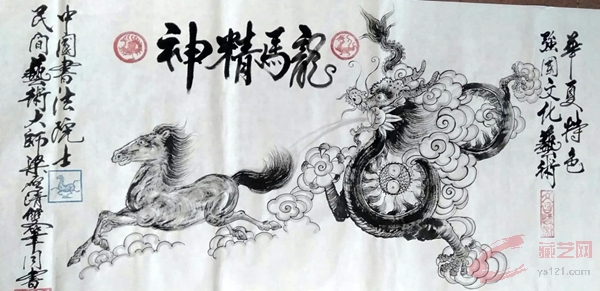 華夏特色
强国文化藝術
龍馬精神
中国書法院士
民间藝術大师梁
同書
ys121.com